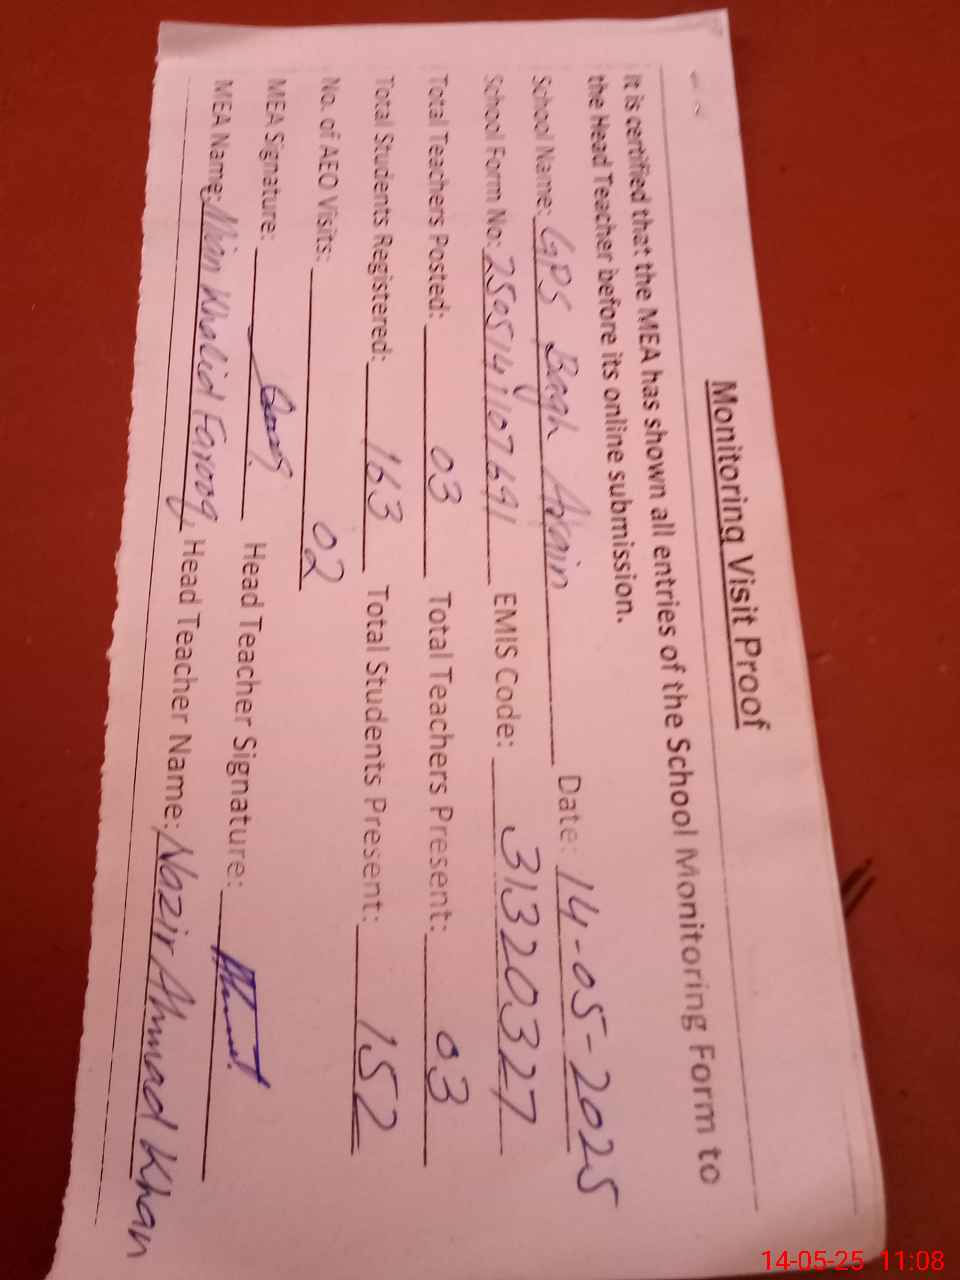 Monitoring Visit Proof
It is certified that the MEA has shown all entries of the School Monitoring Form to
the Head Teacher before its online submission.
School Name: GPS Bagh Date: 14-05-2025
School Form No: 2505141107691 EMIS Code: 31320327
Total Teachers Posted: 03 Total Teachers Present: 03
Total Students Registered: 163 Total Students Present: 152
No. of AEO Visits: 02
MEA Signature: Head Teacher Signature:
MEA Name: Mian Khalid Farooq Head Teacher Name: Nazir Ahmad Khan
14-05-25 11:08